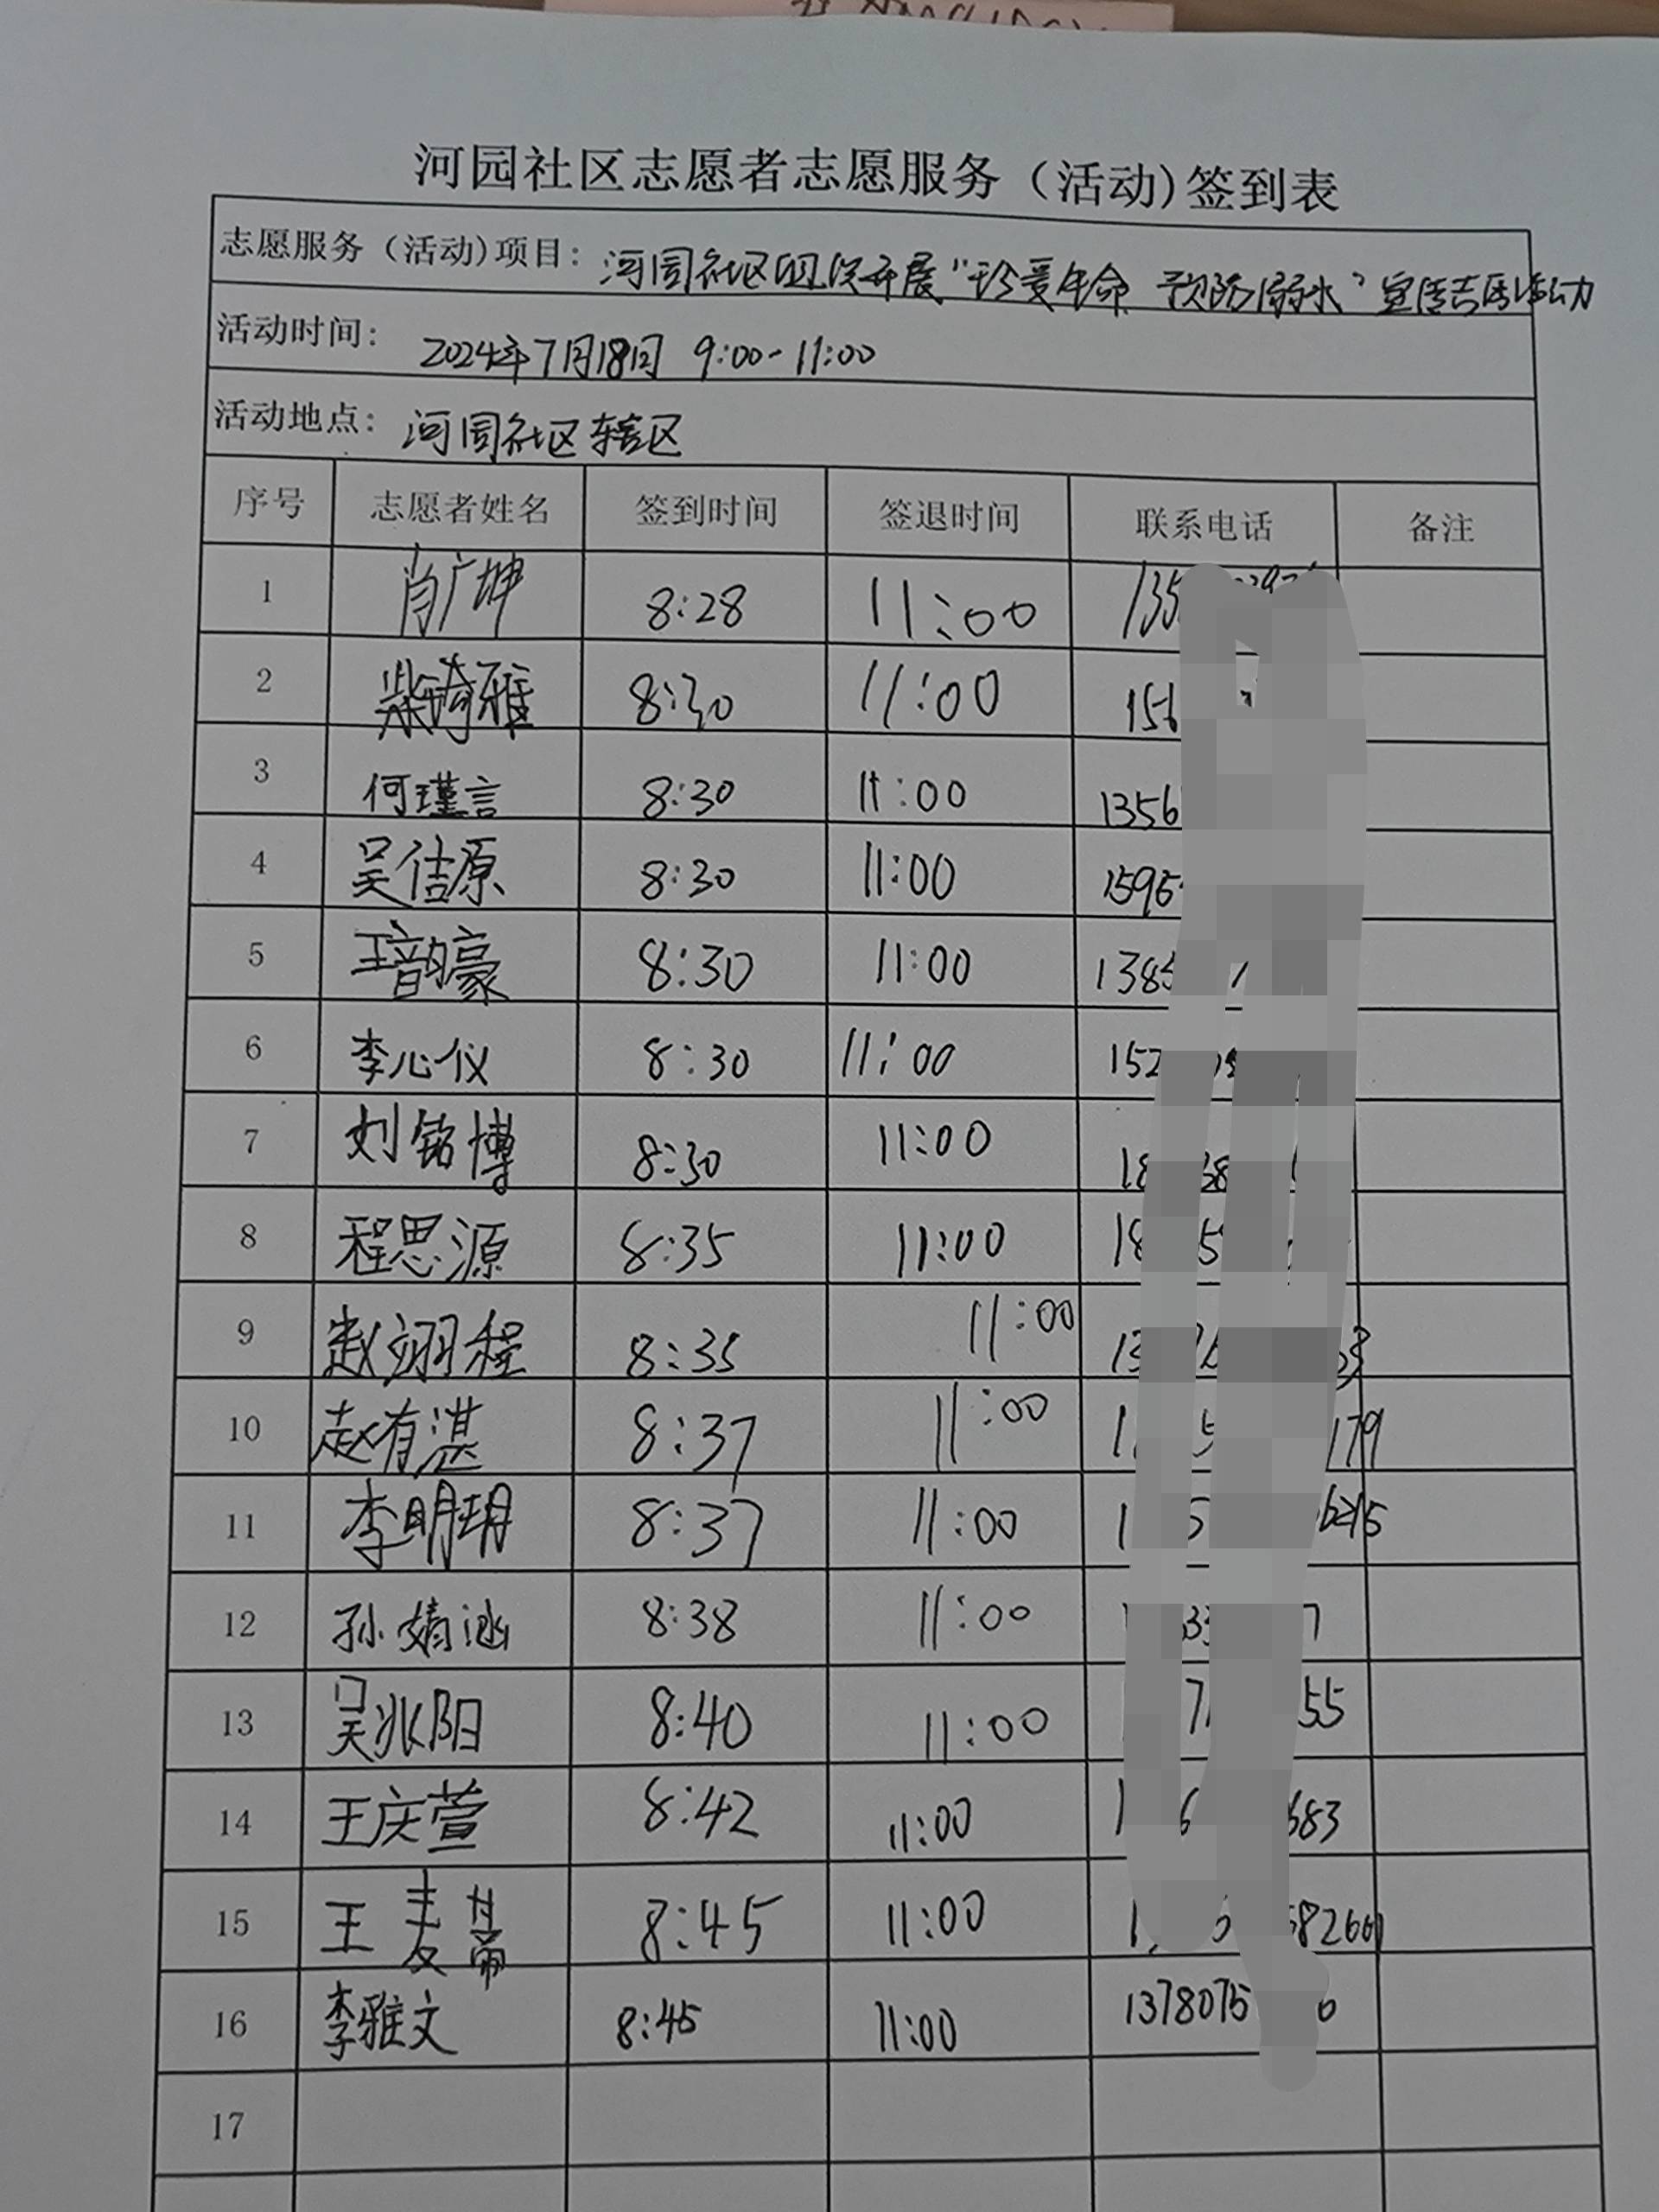 河园社区志愿者志愿服务（活动)签到表
志愿服务（活动)项目：河园社区组织开展“珍爱生命 预防溺水”宣传志愿活动
活动时间： 2024年7月18日 9:00-11:00
活动地点： 河园社区辖区
序号 志愿者姓名 签到时间 签退时间 联系电话 备注
1 肖广坤 8:28 11:00 135
2 柴锜雅 8:30 11:00 156
3 何瑾言 8:30 11:00 1356
4 吴佶原 8:30 11:00 1596
5 王韵豪 8:30 11:00 1385
6 李心仪 8:30 11:00 152
7 刘铭博 8:30 11:00 18
8 程思源 8:35 11:00 18 5
9 赵翊程 8:35 11:00 13
10 赵有湛 8:37 11:00 1 5 179
11 李明玥 8:37 11:00 1 5 6215
12 孙婧涵 8:38 11:00 33 7
13 吴兆阳 8:40 11:00 7 55
14 王庆萱 8:42 11:00 1 6 683
15 王麦 8:45 11:00 1 8266
16 李雅文 8:45 11:00 1378075 0
17